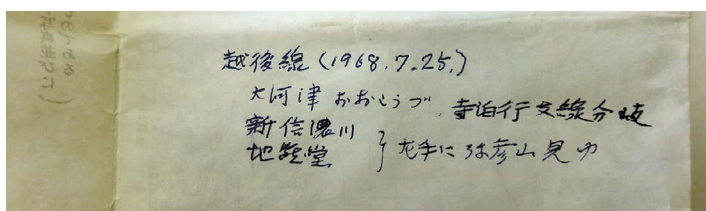 越後線(1968.7.25.)
大河津 おおこうづ、寺泊行支線分岐
新信濃川
地蔵堂 } 左手に弥彦山見ゆ